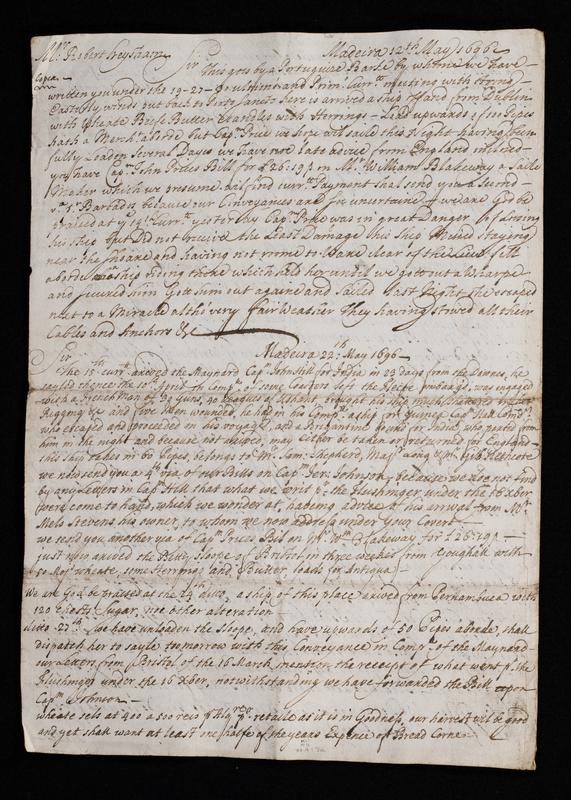 Mr Robert Heysham Madeira 12th May 1696
Copea Sir This goes by a Portuguize Barke by whome we have
written you under the 19-27 - ultimo and Prim: Currtt meeting with strong
Easterly winds put back to Porto Santo here is arrived a ship of and from Dublin
with Wheate Beife Butter Candles with Herrings - Lead upwards of 100 Pipes
hath a Mercht aBord but Capt: Price we hope will saile this Night having been
fully Loaden Several Dayes we have noe late advice from England inclosed
you have Capt John Prices Bill for £26:19s on Mr William Blakeway a Saile
Maker which we presume bal find curr: Payment shal send you a Second
via Barbados because our Conveyances are soe uncertaine if we are God be
praised at ye 14th Currtt yesterday Capt Price was in great Danger of Losing
his ship but Did not receive the Least Damage his Ship Haveing staying
near the shoare and having not roome to Ware clear of the fell
abord ship riding there which held her until we gott out a Wharpe
and secured him Gott him out againe and Sailed last Night She escaped
next to a Miracle altho very fair Weather They having straved all their
Cables and Anchors &c
Madeira 22th May 1696
Sir
The 15th currtt arived the Maynard Capt John Hill for India in 23 days from the Downes, he
sayled thence the 10th April in Compa of some Coasters left the fleete Imbargo, was engaged
with a French Man of 34 guns, 40 Leagues of Ushant brought his ship much shattered in
Rigging &c and five Men wounded, he had in his Compa: a ship for Guinea Capt
who escaped and proceeded in his voyage, and a Brigantine bound for India, who parted from
him in the night and because not helped, may either be taken or returned for England
this ship takes in 60 Pipes, belongs to Mr Sam: Shepherd, Majr Long & Mr Gilb Heathcote
we now send you a 4th via of our Bills on Capt Jer: Johnson, because we doe not find
by any Letters in Capt Hill that what we writ p the Flushinger, under the 16 xber
were come to hand, which we wonder at, haveing advice of his arrival from Mr
Melo Stevens his owner, to whom we now address under your Covert
we send you another via of Capt Prices Bill on Mr Wm Blakeway for £26:19s
just now arived the Betty Sloope of Bristol in three weekes from Youghall with
50 Moys wheate, some Herrings and Butter, loads for Antigua
we are God be praised at the 24th ditto, a ship of this place arived from Pernambuca with
120 chests Sugar, noe other alteration
ditto 27th / we have unloaden the Slope, and have upwards of 50 Pipes aborde, shall
dispatch her to sayle, tomorrow with this Conveyance in Compa of the Maynard
our Letters from Bristol of the 16 March mention the receipt of what went p the
Flushinger under the 16 xber, notwithstanding we have forwarded the Bill upon
Capt Johnson
wheate sels at 400 a 500 reis p Alqre retaile as it is in Goodness, our harvest wil be good
and yet shall want at least one halfe of the years Expence of Bread Corne